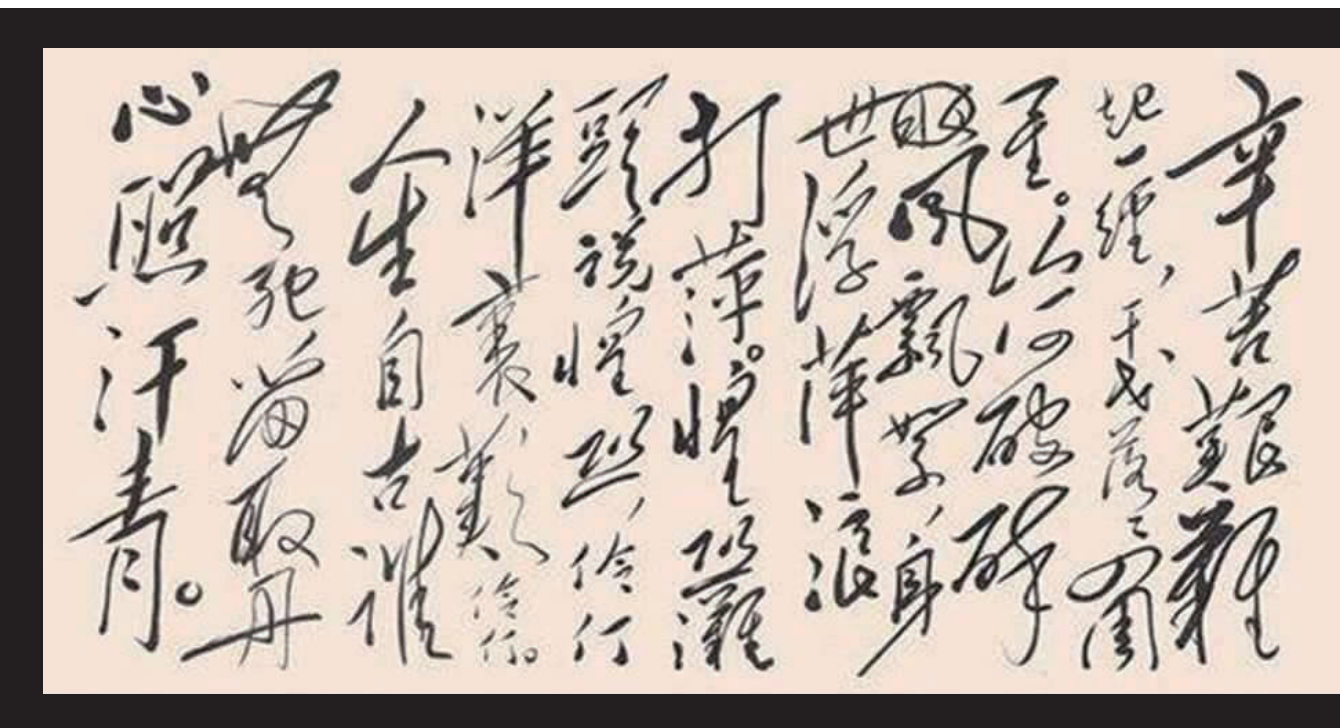 辛苦艱難
起一經，干戈落々四周
星。山河破碎
風飄絮，身
世浮萍浪
打萍。惶恐灘
頭說惶恐，伶仃
洋裏歎伶仃。
人生自古誰
無死留取丹
心照汗青。